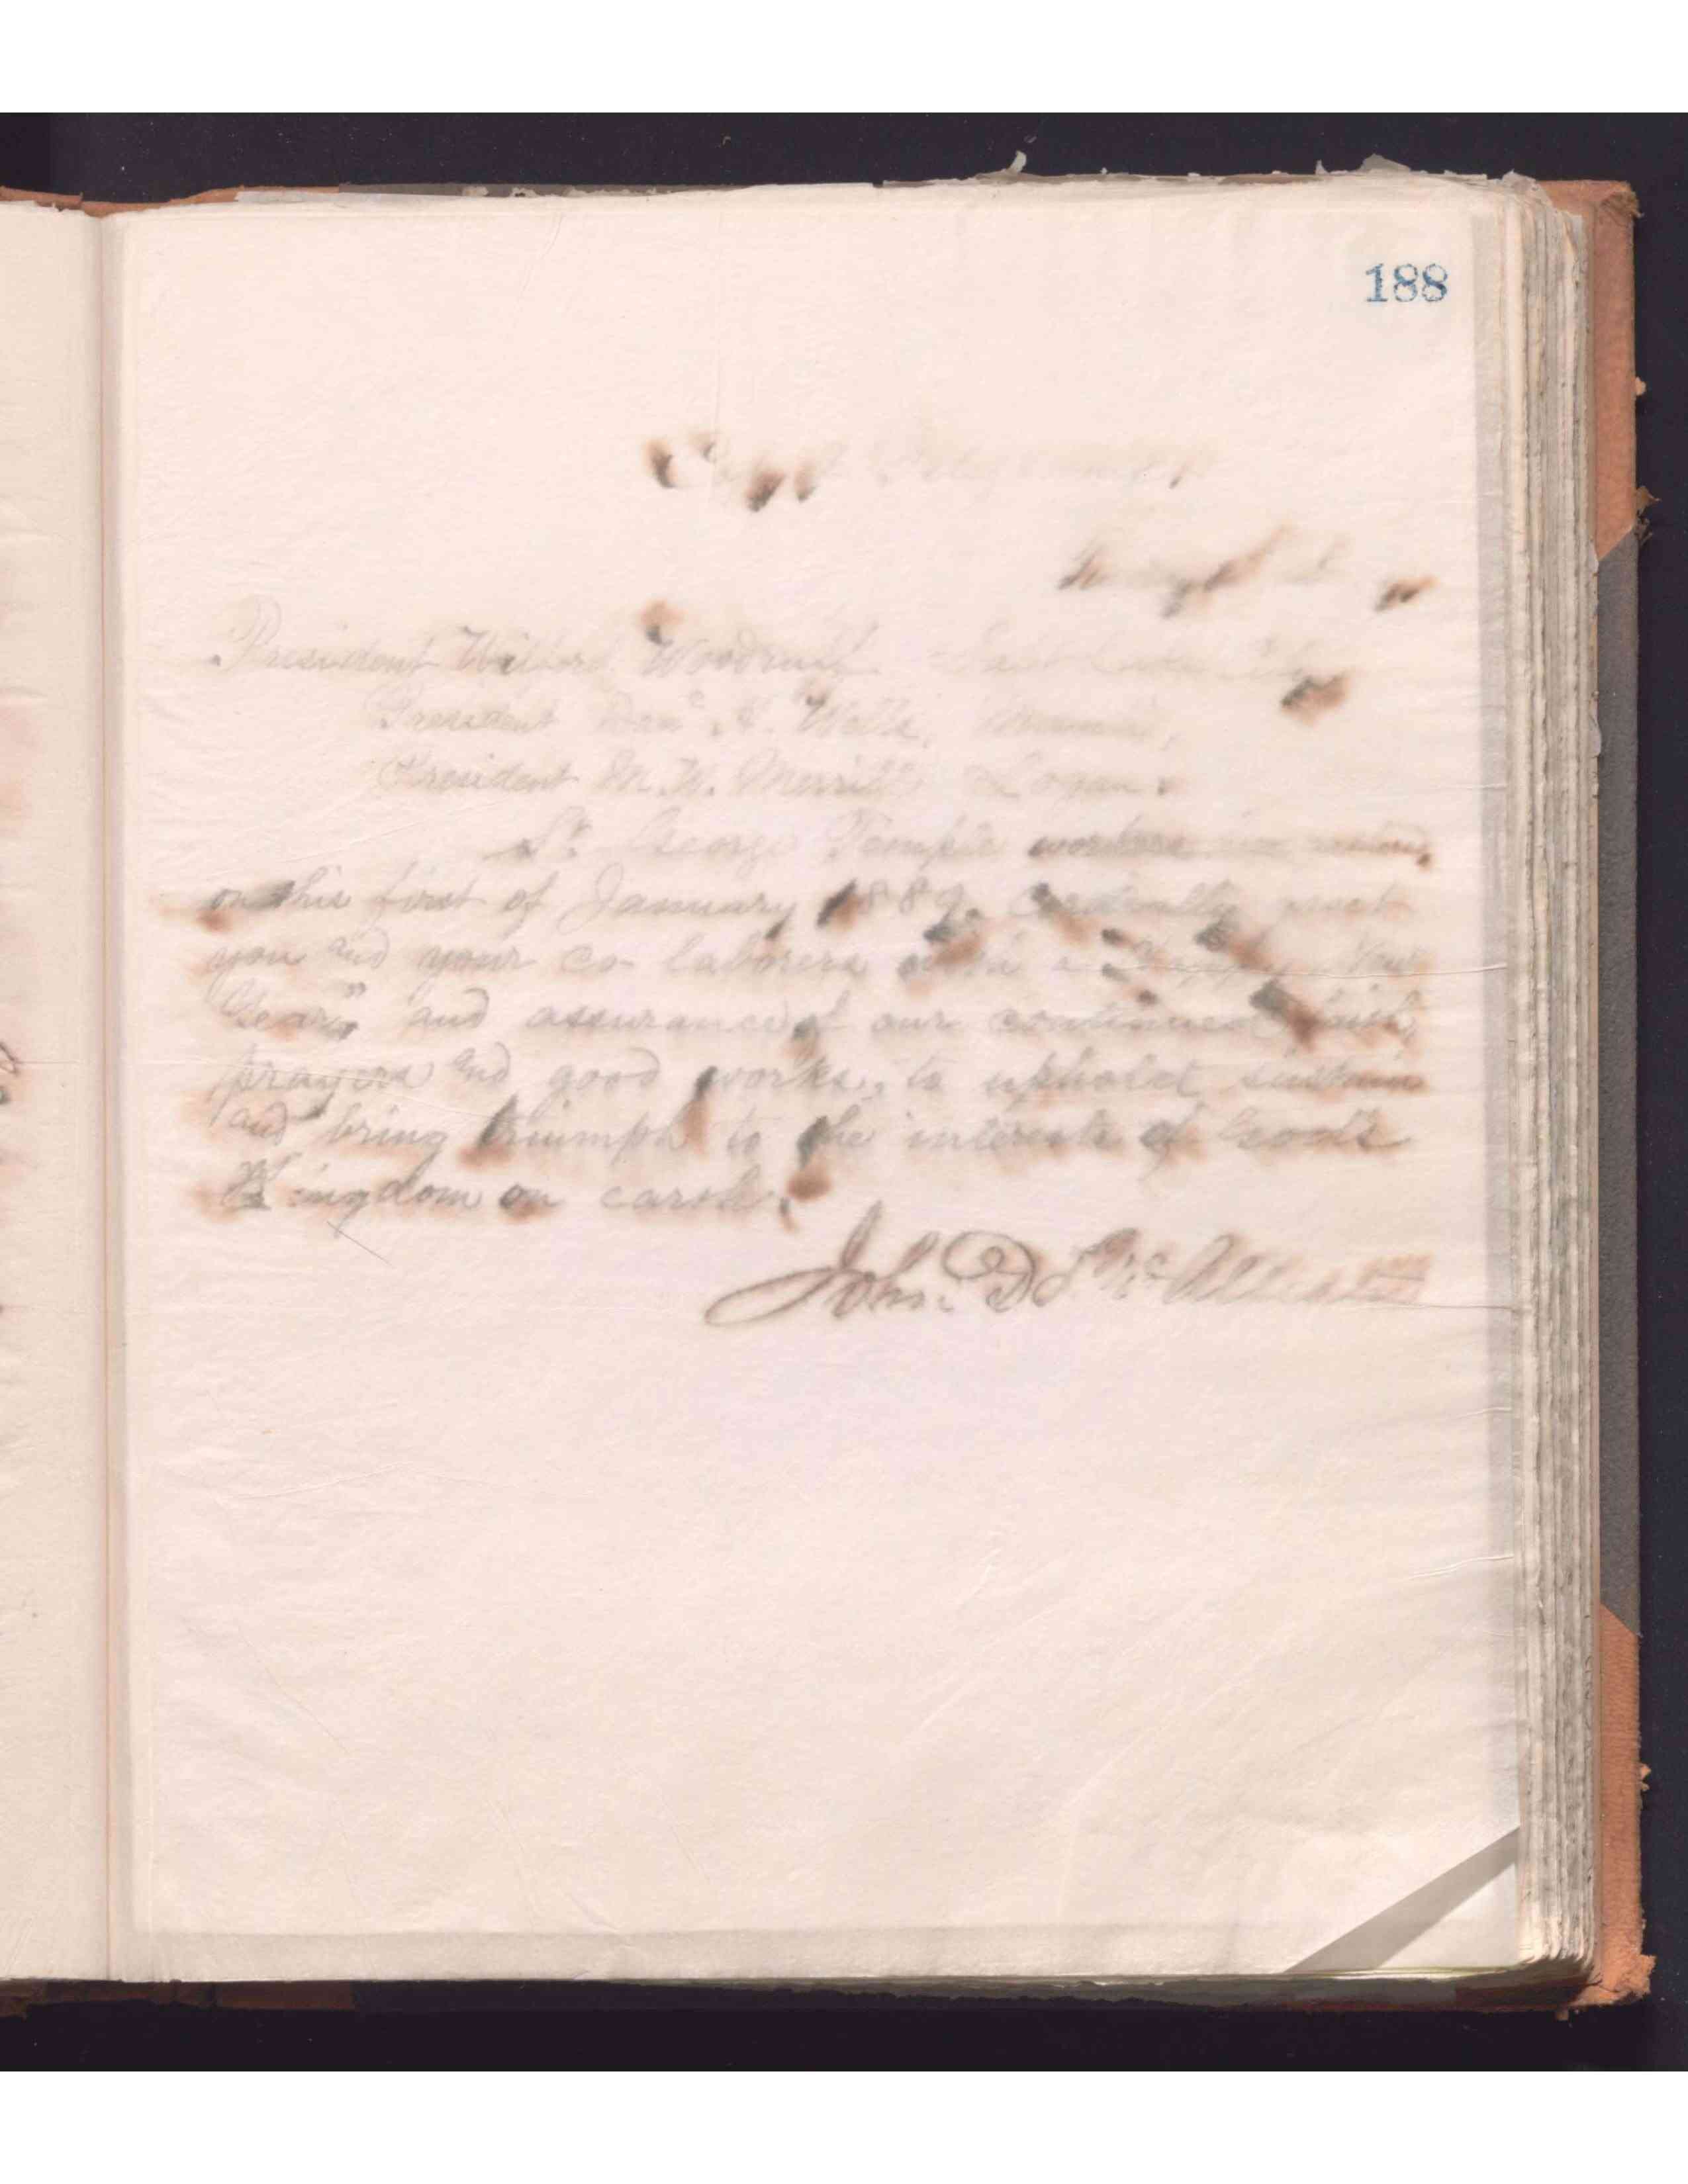 188
Copy Telegram
President Wilford Woodruff Salt Lake City
President Danl. H. Wells, Manti,
President M. W. Merrill Logan.
St. George Temple workers
on this first of January 1889. Cordially greet
you and your co-laborers with a "Happy New
Year" and assurance of our continued faith,
prayers and good works, to uphold sustain
and bring triumph to the interests of God's
Kingdom on earth.
John D. T. McAllister